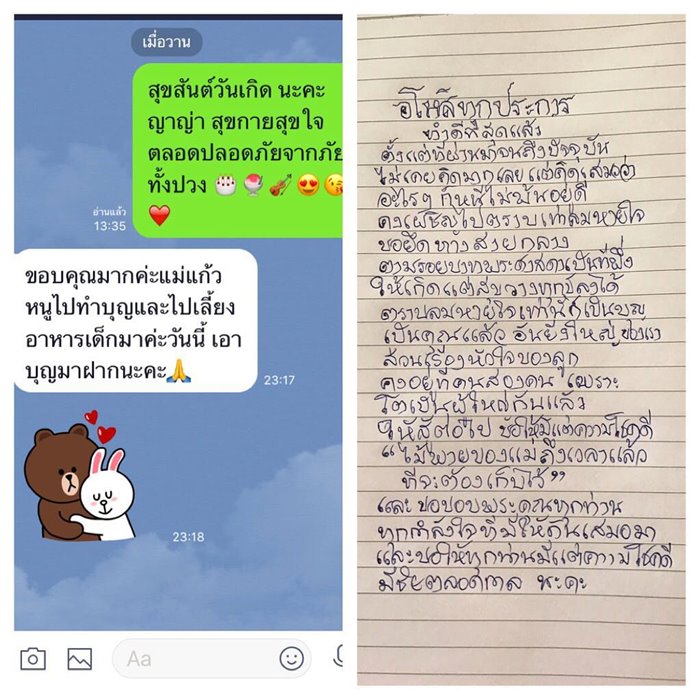 เมื่อวาน
สุขสันต์วันเกิด นะคะ
ญาญ่า สุขกายสุขใจ
ตลอดปลอดภัยจากภัย
ทั้งปวง 🎂🍧🎻😍😘
❤️
อ่านแล้ว
13:35
ขอบคุณมากค่ะแม่แก้ว
หนูไปทำบุญและไปเลี้ยง
อาหารเด็กมาค่ะวันนี้ เอา
บุญมาฝากนะคะ🙏
23:17
23:18
Aa
อโหสิทุกประการ
ทำดีที่สุดแล้ว
ตั้งแต่ที่ผ่านมาจนถึงปัจจุบัน
ไม่เคยคิดมากเลย แต่คิดเสมอว่า
อะไรๆ ก็หนีไม่พ้น
คง ไปตราบเท่าลมหายใจ
ขอยึดทางสายกลาง
ตามรอยบาทพระศาสดาเป็นที่พึ่ง
ให้เกิดแต่ วางทุกข์ลงได้
ตราบลมหายใจเท่านี้ก็เป็นบุญ
เป็นคุณแล้ว อันยิ่งใหญ่ของเรา
ส่วนเรื่องหัวใจของลูก
คงอยู่ที่คนสองคน เพราะ
โตเป็นผู้ใหญ่กันแล้ว
ให้ ต่อไป ขอให้มีแต่ความโชคดี
“ไม้พายของแม่ถึงเวลาแล้ว
ที่จะต้องเก็บไว้”
และขอขอบพระคุณทุกท่าน
ทุกกำลังใจที่มีให้กันเสมอมา
และขอให้ทุกท่านมีแต่ความโชคดี
มีชัยตลอดกาล นะคะ